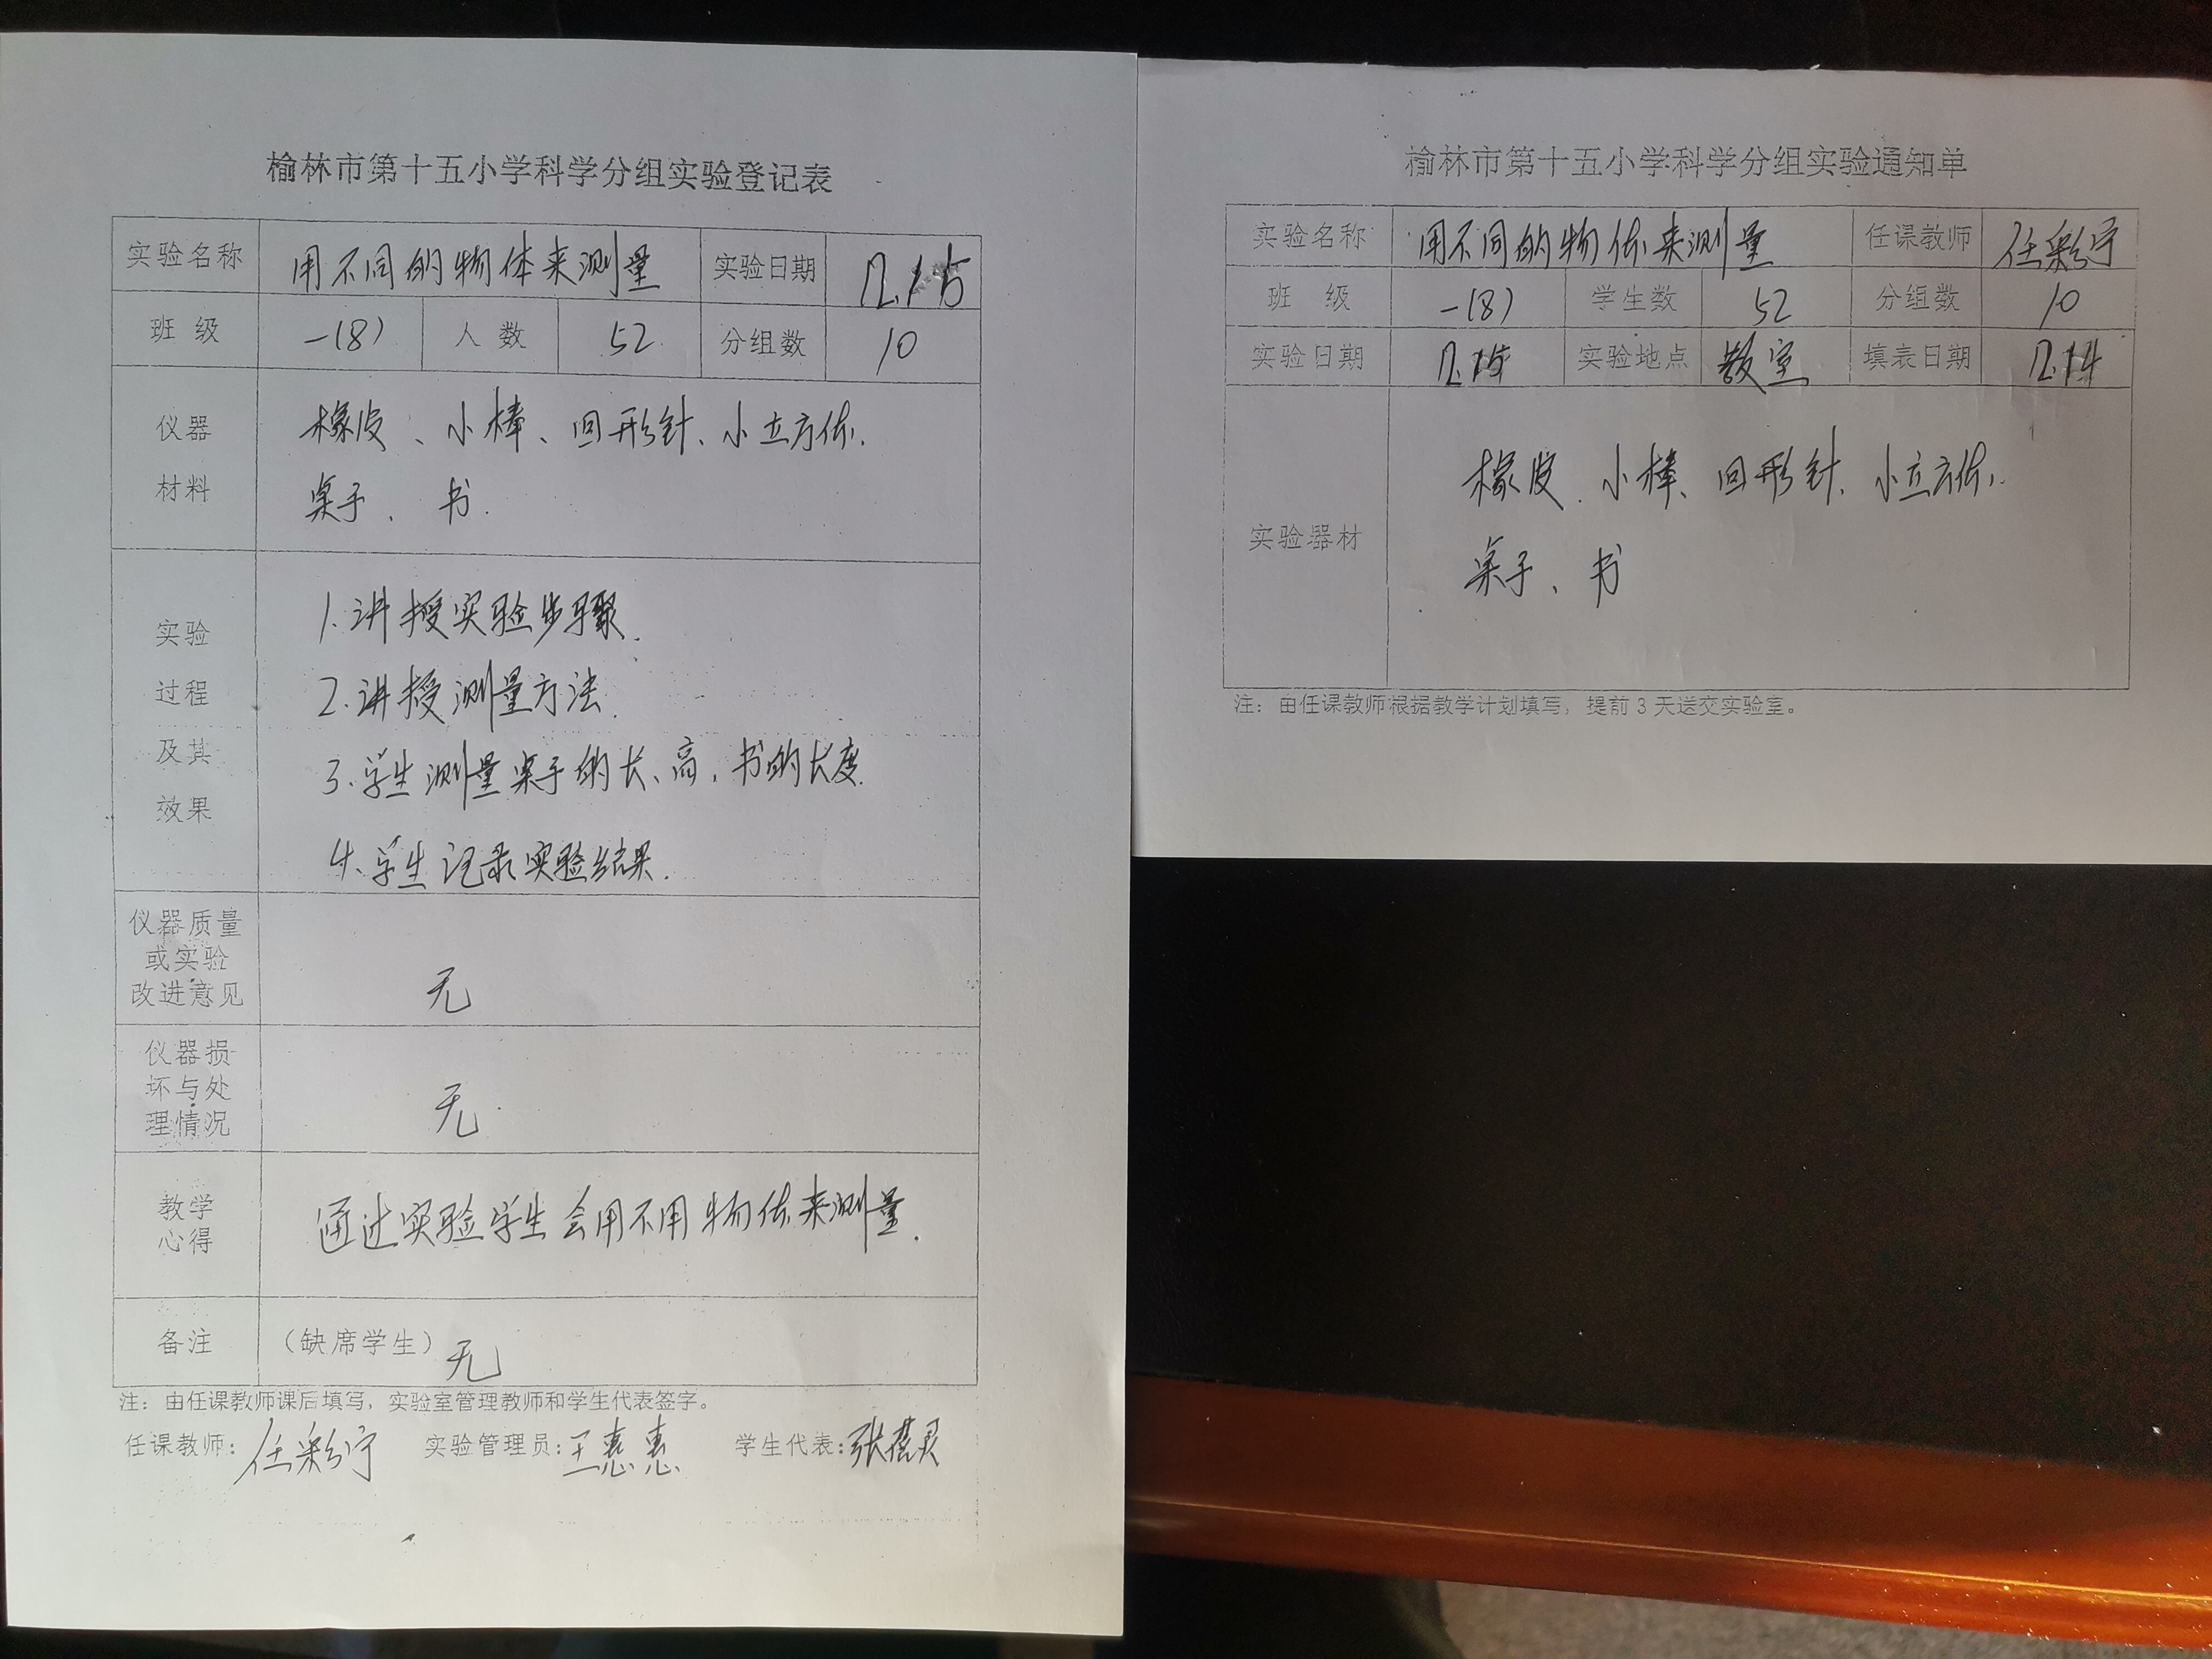 榆林市第十五小学科学分组实验登记表
实验名称 用不同的物体来测量 实验日期 12.15
班 级 一(8) 人 数 52 分组数 10
仪器 材料
橡皮、小棒、回形针、小立方体、
桌子、书.
实验 过程 及其 效果
1.讲授实验步骤.
2.讲授测量方法.
3.学生测量桌子的长、高,书的长度.
4.学生记录实验结果.
仪器质量
或实验
改进意见
无
仪器损
坏与处
理情况
无
教学
心得
通过实验学生会用不用物体来测量.
备注 (缺席学生) 无
注: 由任课教师课后填写, 实验室管理教师和学生代表签字。
任课教师: 任彩宁 实验管理员: 王惠惠 学生代表: 张
榆林市第十五小学科学分组实验通知单
实验名称 用不同的物体来测量 任课教师 任彩宁
班 级 一(8) 学生数 52 分组数 10
实验日期 12.15 实验地点 教室 填表日期 12.14
实验器材
橡皮、小棒、回形针、小立方体、
桌子、书
注: 由任课教师根据教学计划填写, 提前3天送交实验室。